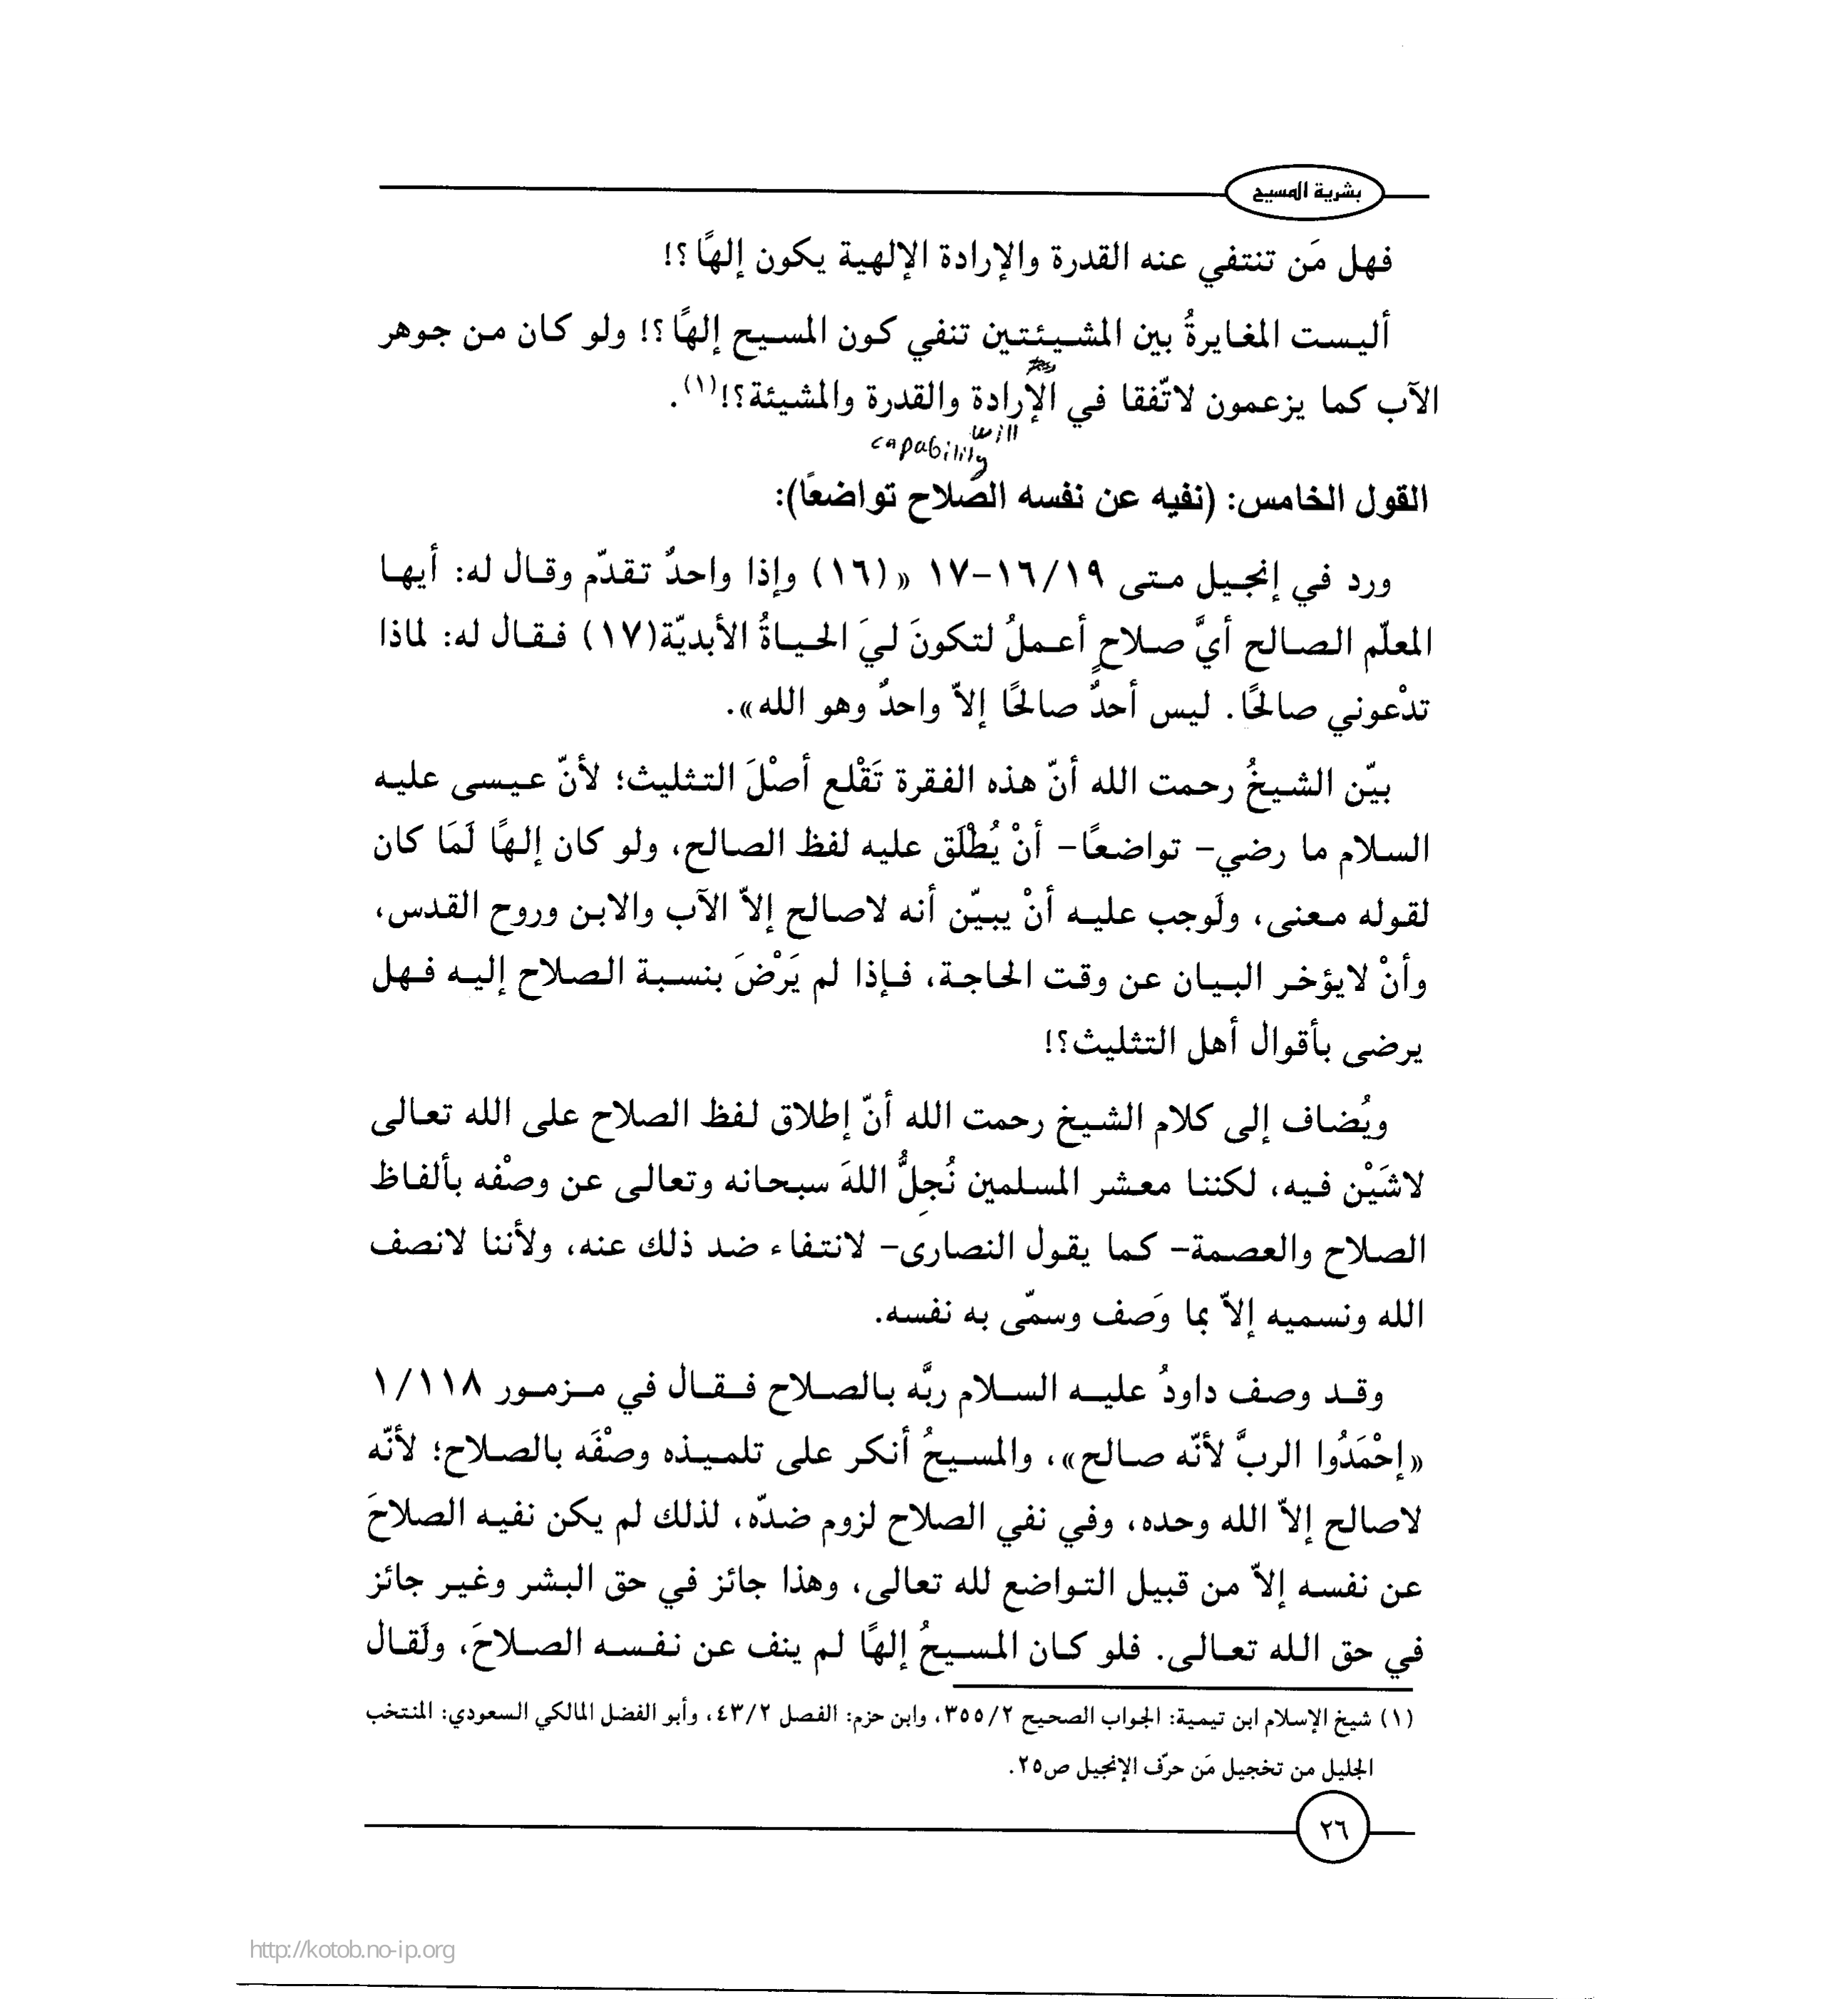 بشرية المسيح
فهل مَن تنتفي عنه القدرة والإرادة الإلهية يكون إلهًا؟!
أليست المغايرةُ بين المشيئتين تنفي كون المسيح إلهًا؟! ولو كان من جوهر
الآب كما يزعمون لاتّفقا في الإرادة والقدرة والمشيئة؟!(١).
will
capability
القول الخامس: (نفيه عن نفسه الصّلاح تواضعًا):
ورد في إنجيل متى ١٦/١٩-١٧ «(١٦) وإذا واحدٌ تقدّم وقال له: أيها
المعلّم الصالح أيَّ صلاحٍ أعملُ لتكونَ ليَ الحياةُ الأبديّة(١٧) فقال له: لماذا
تدْعوني صالحًا. ليس أحدٌ صالحًا إلاّ واحدٌ وهو الله».
بيّن الشيخُ رحمت الله أنّ هذه الفقرة تَقْلع أصْلَ التثليث؛ لأنّ عيسى عليه
السلام ما رضي- تواضعًا- أنْ يُطْلَق عليه لفظ الصالح، ولو كان إلهًا لَمَا كان
لقوله معنى، ولَوجب عليه أنْ يبيّن أنه لاصالح إلاّ الآب والابن وروح القدس،
وأنْ لايؤخر البيان عن وقت الحاجة، فإذا لم يَرْضَ بنسبة الصلاح إليه فهل
يرضى بأقوال أهل التثليث؟!
ويُضاف إلى كلام الشيخ رحمت الله أنّ إطلاق لفظ الصلاح على الله تعالى
لاشَيْن فيه، لكننا معشر المسلمين نُجِلُّ اللهَ سبحانه وتعالى عن وصْفه بألفاظ
الصلاح والعصمة- كما يقول النصارى- لانتفاء ضد ذلك عنه، ولأننا لانصف
الله ونسميه إلاّ بما وَصف وسمّى به نفسه.
وقد وصف داودُ عليه السلام ربَّه بالصلاح فقال في مزمور ١/١١٨
«إحْمَدُوا الربَّ لأنّه صالح»، والمسيحُ أنكر على تلميذه وصْفَه بالصلاح؛ لأنّه
لاصالح إلاّ الله وحده، وفي نفي الصلاح لزوم ضدّه، لذلك لم يكن نفيه الصلاحَ
عن نفسه إلاّ من قبيل التواضع لله تعالى، وهذا جائز في حق البشر وغير جائز
في حق الله تعالى. فلو كان المسيحُ إلهًا لم ينف عن نفسه الصلاحَ، ولَقال
(١) شيخ الإسلام ابن تيمية: الجواب الصحيح ٣٥٥/٢، وابن حزم: الفصل ٤٣/٢، وأبو الفضل المالكي السعودي: المنتخب
الجليل من تخجيل مَن حرّف الإنجيل ص٢٥.
٢٦
http://kotob.no-ip.org